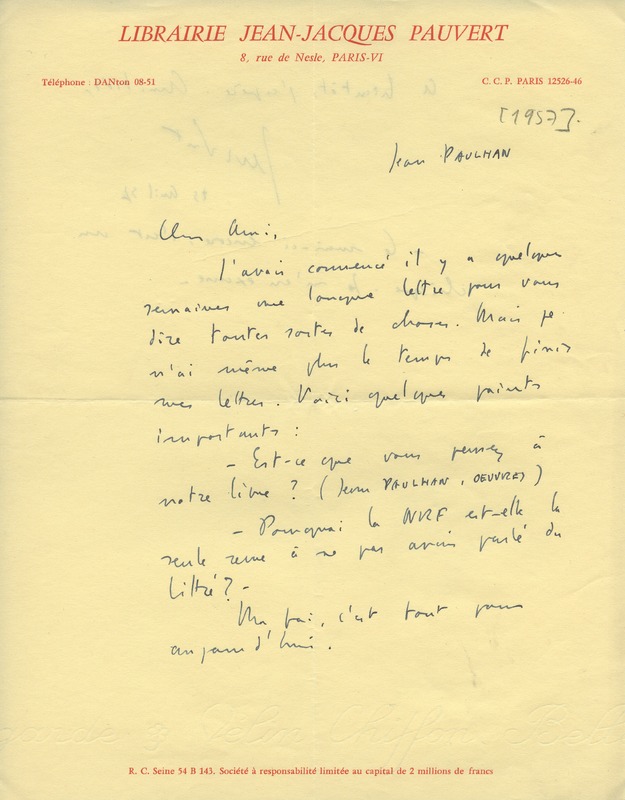 LIBRAIRIE JEAN-JACQUES PAUVERT
8, rue de Nesle, PARIS-VI
Téléphone : DANton 08-51
C. C. P. PARIS 12526-46
[1957].
Jean PAULHAN
Cher Ami,
J'avais commencé il y a quelques
semaines une longue lettre pour vous
dire toutes sortes de choses. Mais je
n'ai même plus le temps de finir
mes lettres. Voici quelques points
importants :
- Est-ce que vous pensez à
notre livre ? (Jean PAULHAN, OEUVRES)
- Pourquoi la NRF est-elle la
seule revue à ne pas avoir parlé du
Littré ? -
Ma foi, c'est tout pour
aujourd'hui.
Vélin Chiffon
R. C. Seine 54 B 143. Société à responsabilité limitée au capital de 2 millions de francs